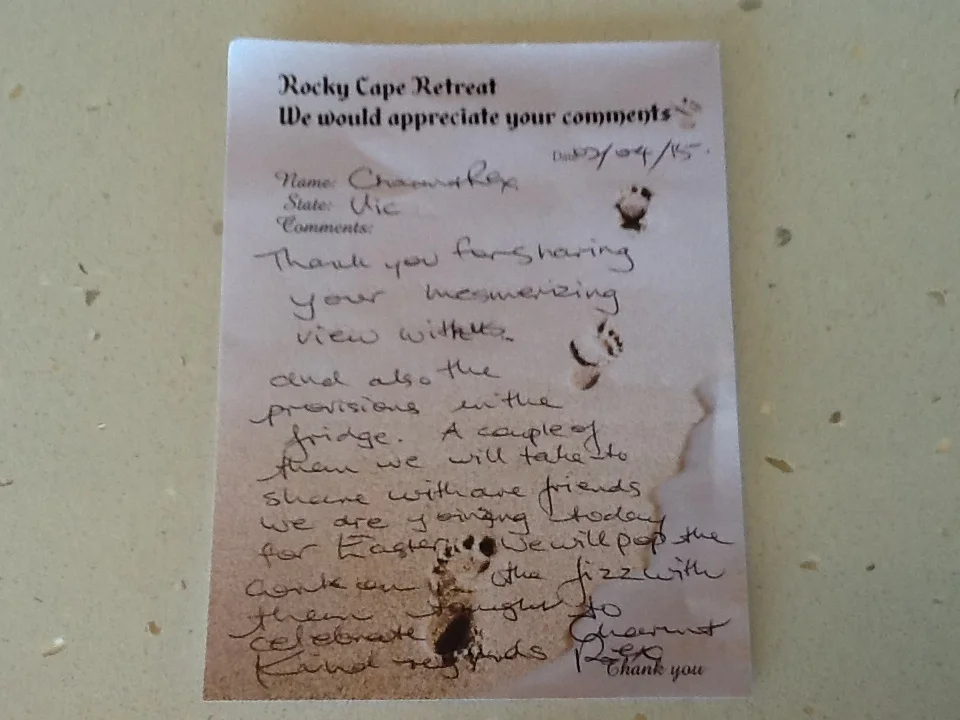 Rocky Cape Retreat
We would appreciate your comments
Date /04/15.
Name:
State: Vic
Comments:
Thank you for sharing
your mesmerizing
view with us.
and also the
provisions in the
fridge. A couple of
them we will take to
share with are friends
we are yoining today
for Easter. We will pop the
cork on the fizz with
them tonight to
celebrate
Kind regards
Thank you